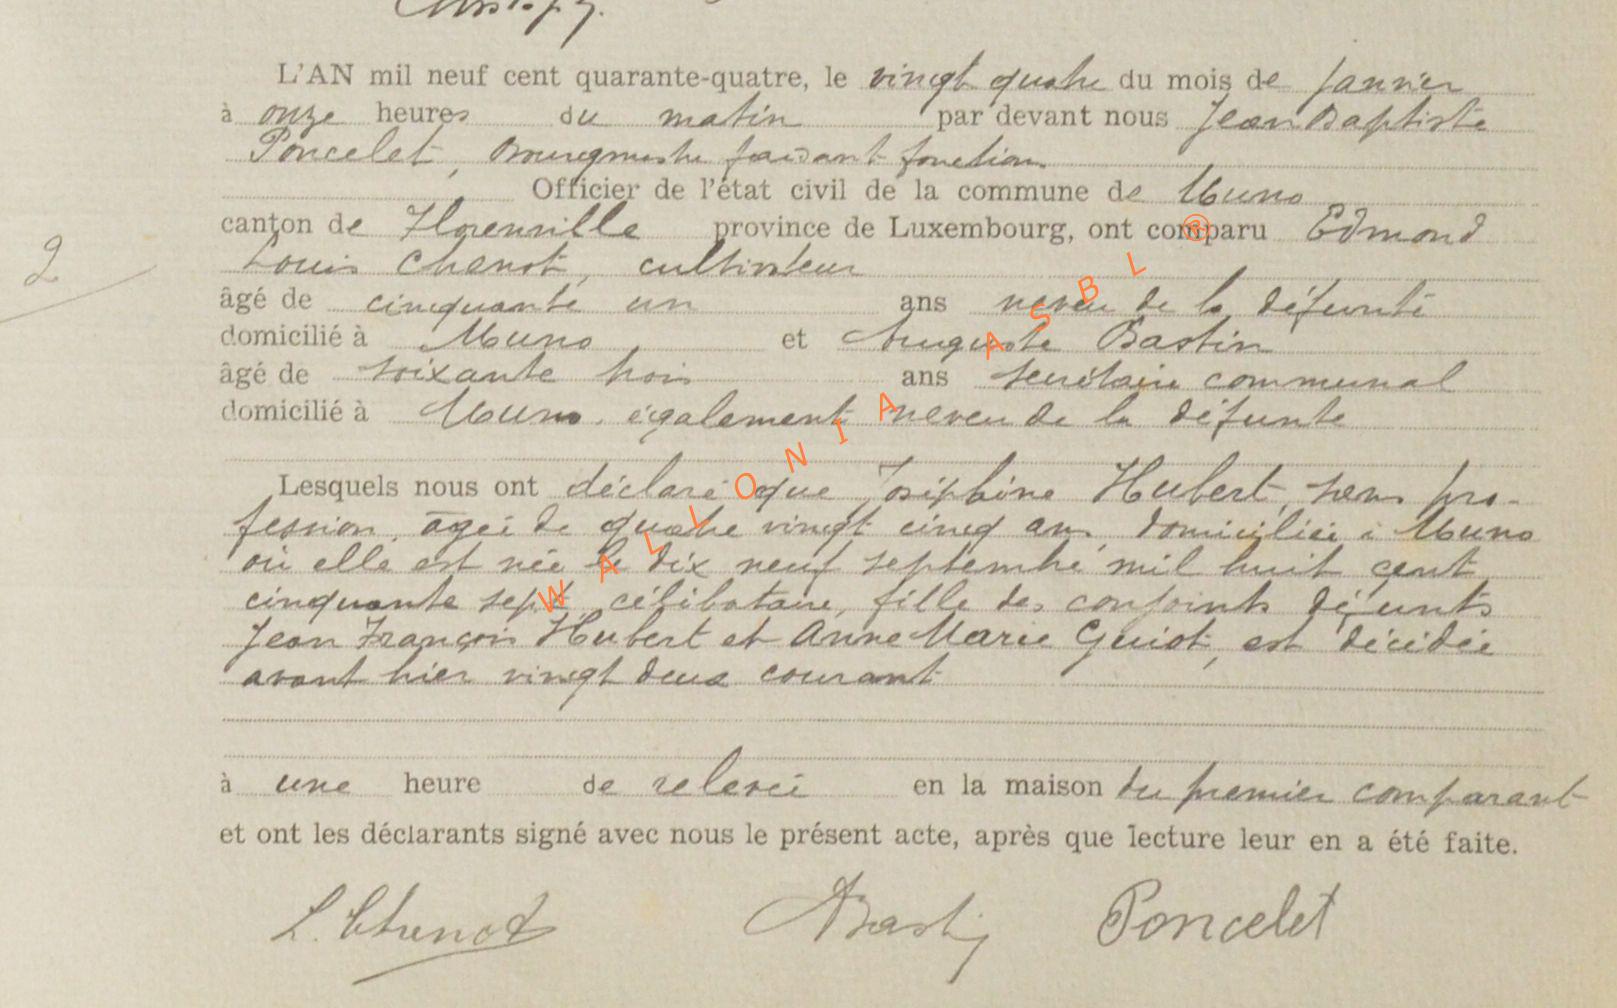 L'AN mil neuf cent quarante-quatre, le vingt quatre du mois de Janvier
à onze heures du matin par devant nous Jean Baptiste
Poncelet, Bourgmestre faisant fonction
Officier de l'état civil de la commune de Muno
canton de Florenville province de Luxembourg, ont comparu Edmond
Louis Chenot, cultivateur
2
âgé de cinquante un ans neveu de la défunte
domicilié à Muno et Auguste Bastin
âgé de soixante trois ans secrétaire communal
domicilié à Muno, également neveu de la défunte
Lesquels nous ont déclaré que Joséphine Hubert, sans pro-
fession, âgée de quatre vingt cinq ans, domiciliée à Muno
où elle est née le dix neuf septembre mil huit cent
cinquante sept, célibataire, fille des conjoints défunts
Jean François Hubert et Anne Marie Guiot, est décédée
avant hier vingt deux courant
à une heure de relevée en la maison du premier comparant
et ont les déclarants signé avec nous le présent acte, après que lecture leur en a été faite.
L. Chenot ABastin Poncelet
WALLONIA ASBL ®